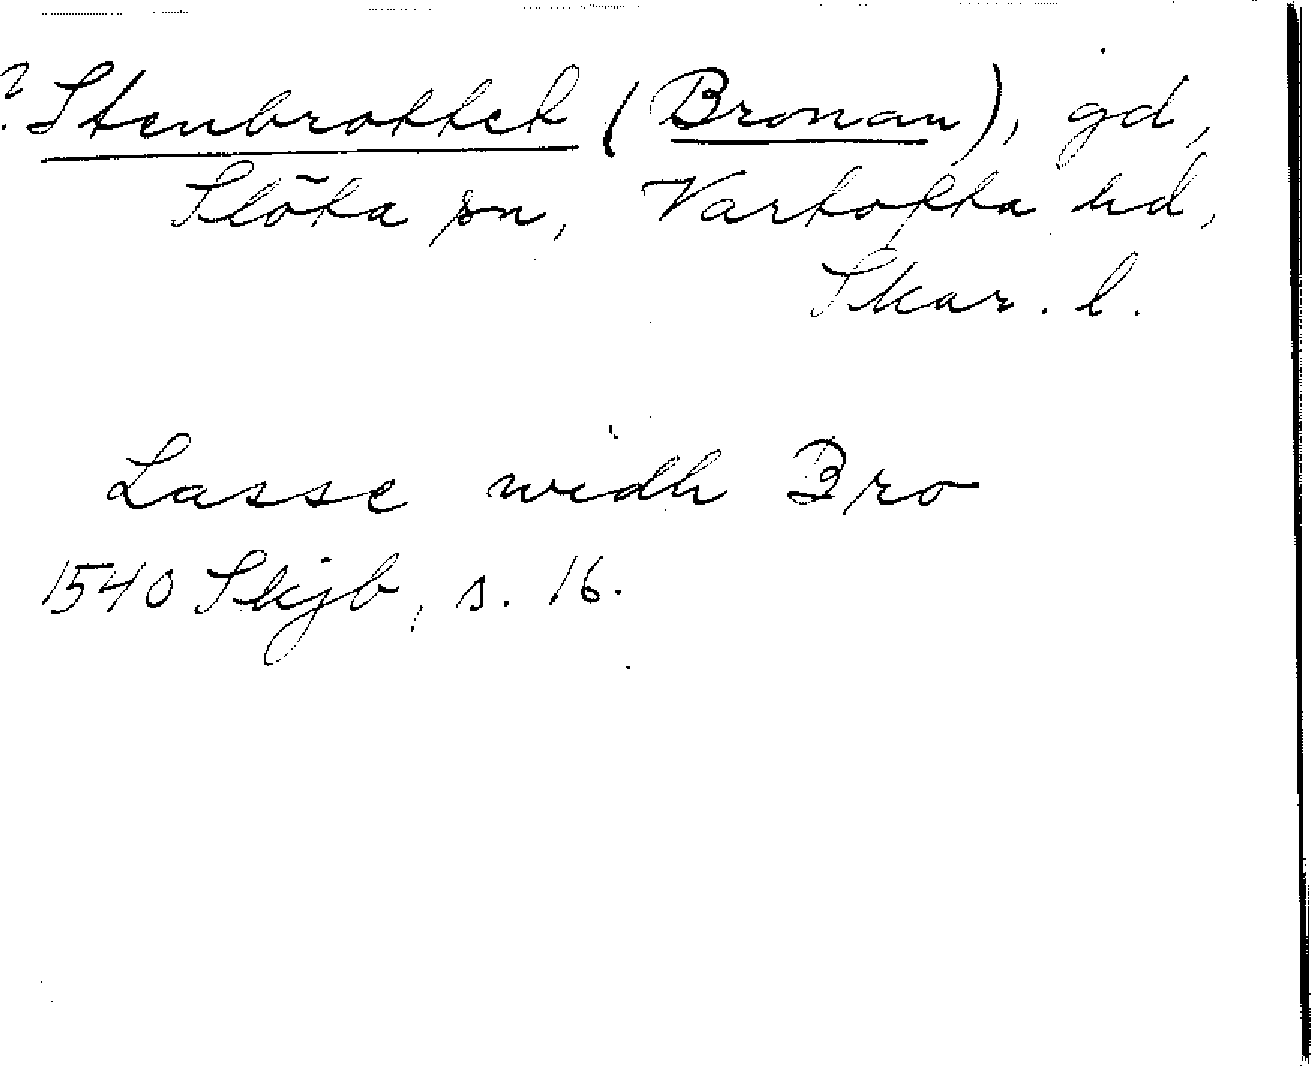 ? Stenbrottet (Bronan), gd,
Slöta sn, Vartofta hd,
Skar. l.
Lasse widh Bro
1540 Skjb, s. 16.